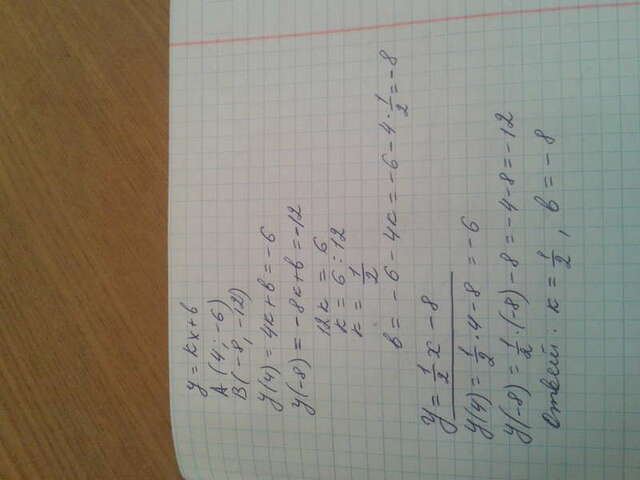 y = kx+b
A (4; -6)
B (-8, -12)
y(4) = 4k+b = -6
y(-8) = -8k+b = -12
12k = 6
k = 6 : 12
k = 1/2
b = -6 - 4k = -6 - 4 · 1/2 = -8
y = 1/2 x - 8
y(4) = 1/2 · 4 - 8 = -6
y(-8) = 1/2 · (-8) - 8 = -4 - 8 = -12
Ответ: k = 1/2, b = -8